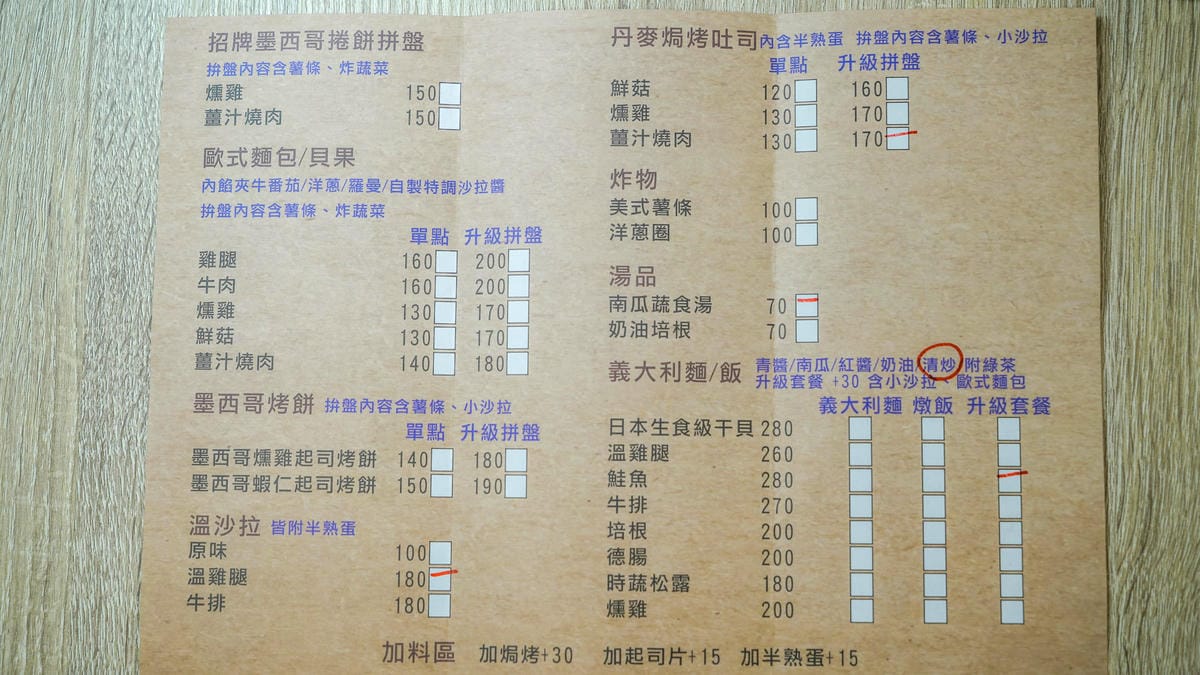 招牌墨西哥捲餅拼盤
拚盤內容含薯條、炸蔬菜
燻雞 150
薑汁燒肉 150
歐式麵包/貝果
內餡夾牛番茄/洋蔥/羅曼/自製特調沙拉醬
拚盤內容含薯條、炸蔬菜
單點 升級拼盤
雞腿 160 200
牛肉 160 200
燻雞 130 170
鮮菇 130 170
薑汁燒肉 140 180
墨西哥烤餅 拚盤內容含薯條、小沙拉
單點 升級拼盤
墨西哥燻雞起司烤餅 140 180
墨西哥蝦仁起司烤餅 150 190
溫沙拉 皆附半熟蛋
原味 100
溫雞腿 180
牛排 180
丹麥焗烤吐司 內含半熟蛋 拚盤內容含薯條、小沙拉
單點 升級拼盤
鮮菇 120 160
燻雞 130 170
薑汁燒肉 130 170
炸物
美式薯條 100
洋蔥圈 100
湯品
南瓜蔬食湯 70
奶油培根 70
義大利麵/飯 青醬/南瓜/紅醬/奶油/清炒 附綠茶
升級套餐 +30 含小沙拉、歐式麵包
義大利麵 燉飯 升級套餐
日本生食級干貝 280
溫雞腿 260
鮭魚 280
牛排 270
培根 200
德腸 200
時蔬松露 180
燻雞 200
加料區 加焗烤+30 加起司片+15 加半熟蛋+15